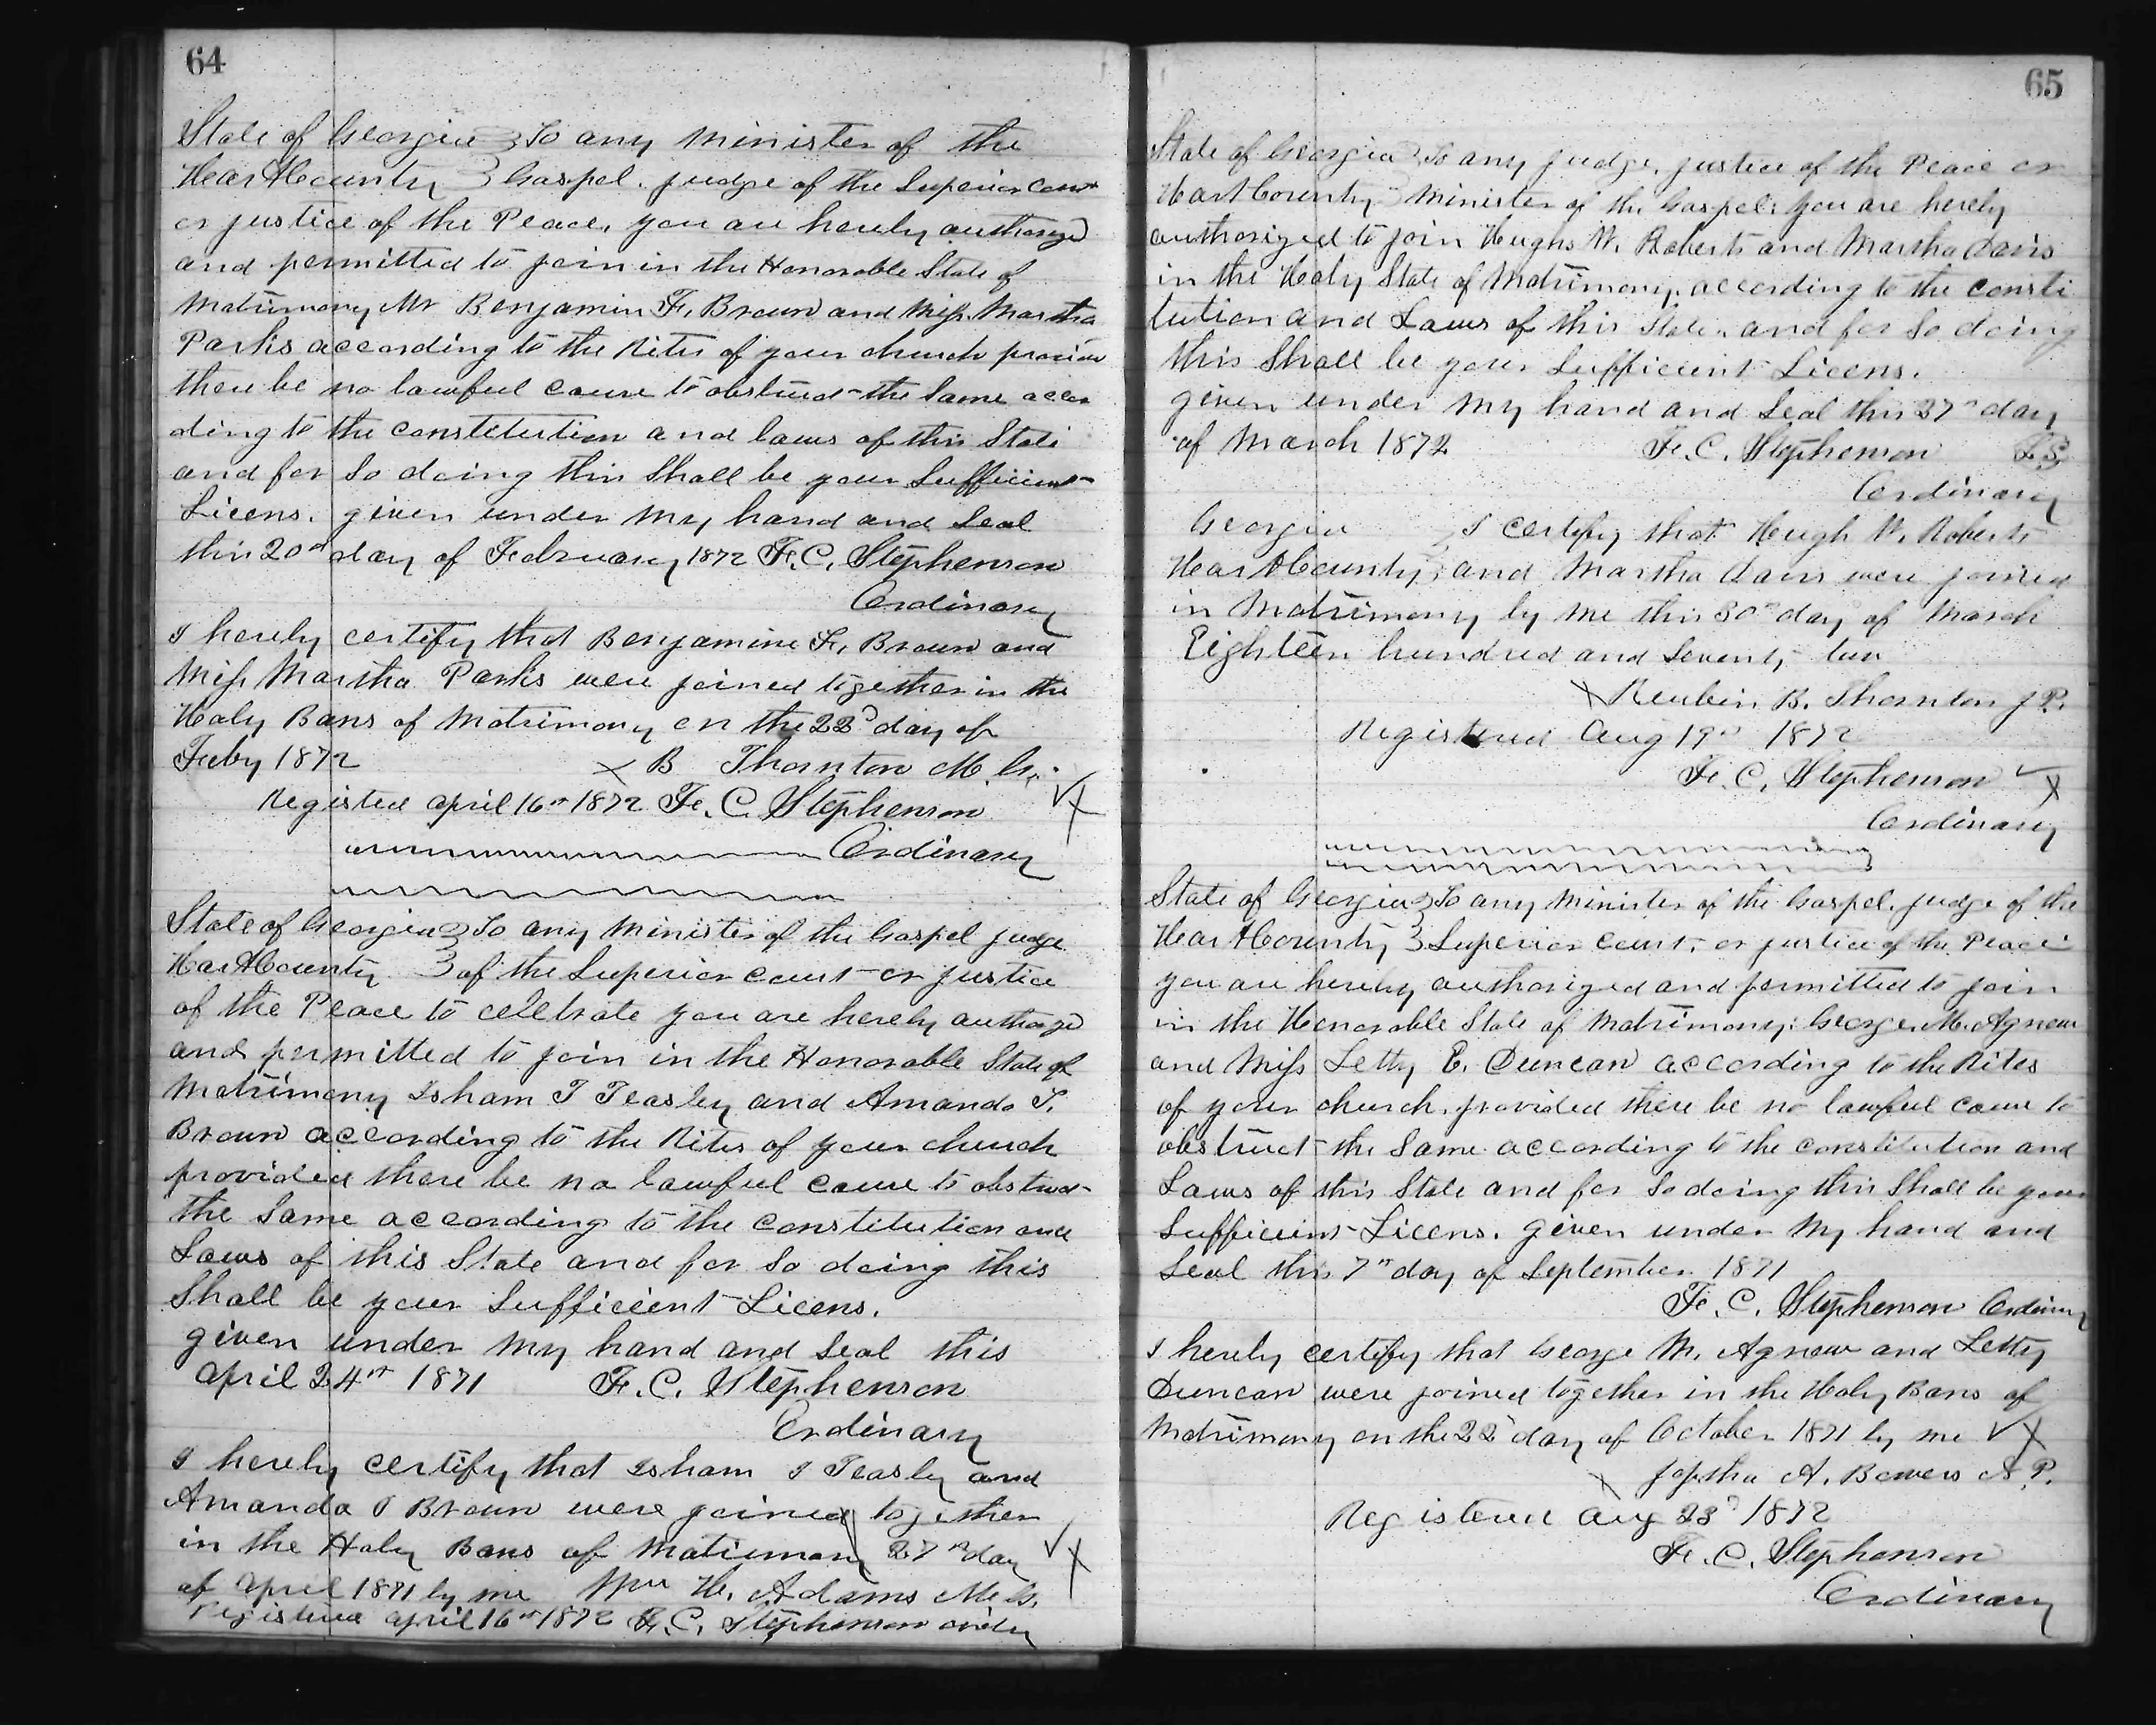 64
State of Georgia } To any Minister of the
Hart County } Gospel. judge of the Superior Court
or justice of the Peace, you are hereby authorized
and permitted to join in the Honorable State of
Matrimony Mr Benjamin F. Brown and Miss Martha
Parks according to the Rites of your church provided
there be no lawful cause to obstruct the Same accor
ding to the constitution and laws of this State
and for So doing this Shall be your Sufficient
Licens. given under my hand and Seal
this 20th day of February 1872 F. C. Stephenson
Ordinary
I hereby certify that Benjamine F. Brown and
Miss Martha Parks were joined together in the
Holy Bans of Matrimony on the 22d day of
Feby 1872 X B Thornton M. G.
Registed april 16th 1872 F. C. Stephenson
Ordinary
State of Georgia } To any Minister of the Gospel judge
Hart County } of the Superior court or justice
of the Peace to celebrate you are hereby authorized
and permitted to join in the Honorable State of
Matrimony Isham T Teasley and Amanda T.
Brown according to the Rites of your church
provided there be no lawful cause to obstruct
the Same according to the constitution and
Laws of this State and for So doing this
Shall be your Sufficient Licens.
given under my hand and Seal this
April 24th 1871 F. C. Stephenson
Ordinary
I hereby certify that Isham T Teasley and
Amanda T Brown were joined together
in the Holy Bans of Matrimony 27th day
of April 1871 by me Wm H. Adams M. G.
Registered april 16th 1872 F. C. Stephenson
65
State of Georgia } To any judge, justice of the Peace or
Hart County } Minister of the Gospel: you are hereby
authorized to join Hughs W. Roberts and Martha Davis
in the Holy State of Matrimony, according to the consti
tution and Laws of this State. and for So doing
this Shall be your Sufficient Licens.
given under my hand and Seal this 27th day
of March 1872 F. C. Stephenson LS
Ordinary
Georgia } I certify that Hugh W. Roberts
Hart County } and Martha Davis were joined
in Matrimony by me this 30th day of March
Eighteen hundred and Seventy two
X Reubin B. Thornton J P.
Registered Aug 19th 1872
F. C. Stephenson
Ordinary
State of Georgia } To any Minister of the Gospel. judge of the
Hart County } Superior Court, or justice of the Peace
you are hereby authorized and permitted to join
in the Honorable State of Matrimony: George M. Agnew
and Miss Letty E. Duncan according to the Rites
of your church. provided there be no lawful cause to
obstruct the Same according to the constitution and
Laws of this State and for So doing this Shall be your
Sufficient Licens. given under my hand and
Seal this 7th day of September 1871
F. C. Stephenson Ordinary
I hereby certify that George M. Agnew and Letty
Duncan were joined together in the Holy Bans of
Matrimony on the 22d day of October 1871 by me
Jeptha A. Bowers N. P.
Registered Aug 23d 1872
F. C. Stephenson
Ordinary